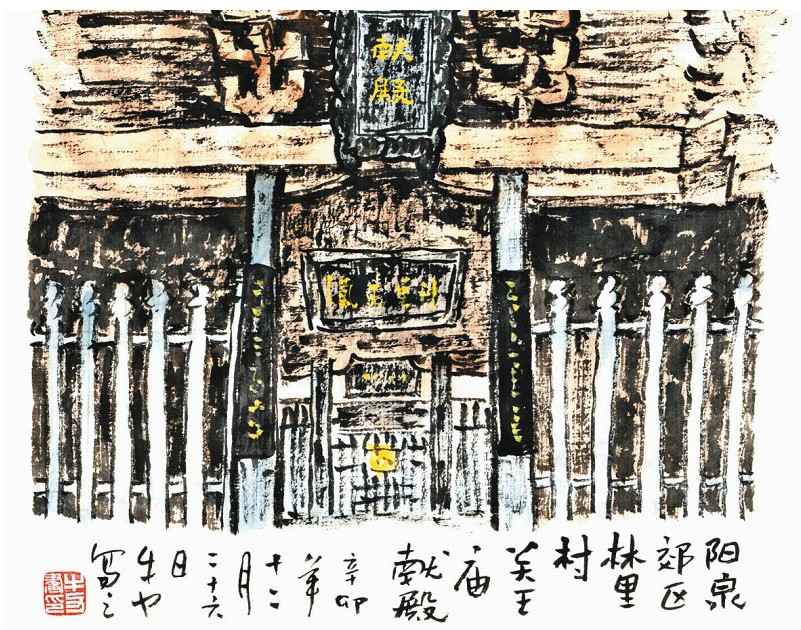 献殿
阳泉
郊区
林里
村
关王
庙
献殿
辛卯
年
十二
月
二十六
日
牛
写之